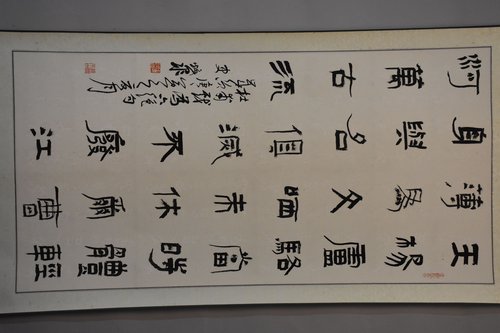 王楊盧駱當時體輕
薄為文哂未休爾曹
身與名俱滅不廢江
河萬古流
杜甫戲為六絕句
庚寅